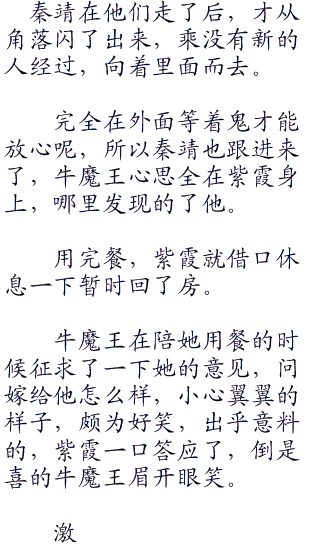 秦靖在他们走了后，才从
角落闪了出来，乘没有新的
人经过，向着里面而去。
完全在外面等着鬼才能
放心呢，所以秦靖也跟进来
了，牛魔王心思全在紫霞身
上，哪里发现的了他。
用完餐，紫霞就借口休
息一下暂时回了房。
牛魔王在陪她用餐的时
候征求了一下她的意见，问
嫁给他怎么样，小心翼翼的
样子，颇为好笑，出乎意料
的，紫霞一口答应了，倒是
喜的牛魔王眉开眼笑。
激